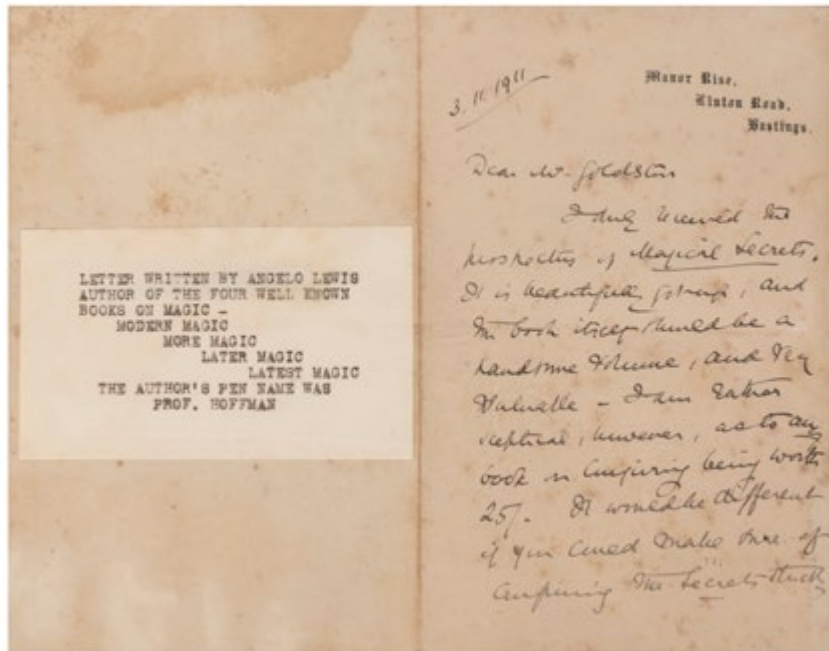 LETTER WRITTEN BY ANGELO LEWIS
AUTHOR OF THE FOUR WELL KNOWN
BOOKS ON MAGIC -
MODERN MAGIC
MORE MAGIC
LATER MAGIC
LATEST MAGIC
THE AUTHOR'S PEN NAME WAS
PROF. HOFFMAN
3.11.1911
Manor Rise,
Linton Road,
Hastings.
Dear Mr. Goldston
I duly received the
prospectus of Magical Secrets.
It is beautifully gotten up, and
the book itself should be a
handsome volume, and very
valuable – I am rather
sceptical, however, as to any
book on conjuring being worth
25/-. It would be different
if you could make sure of
confining the secrets